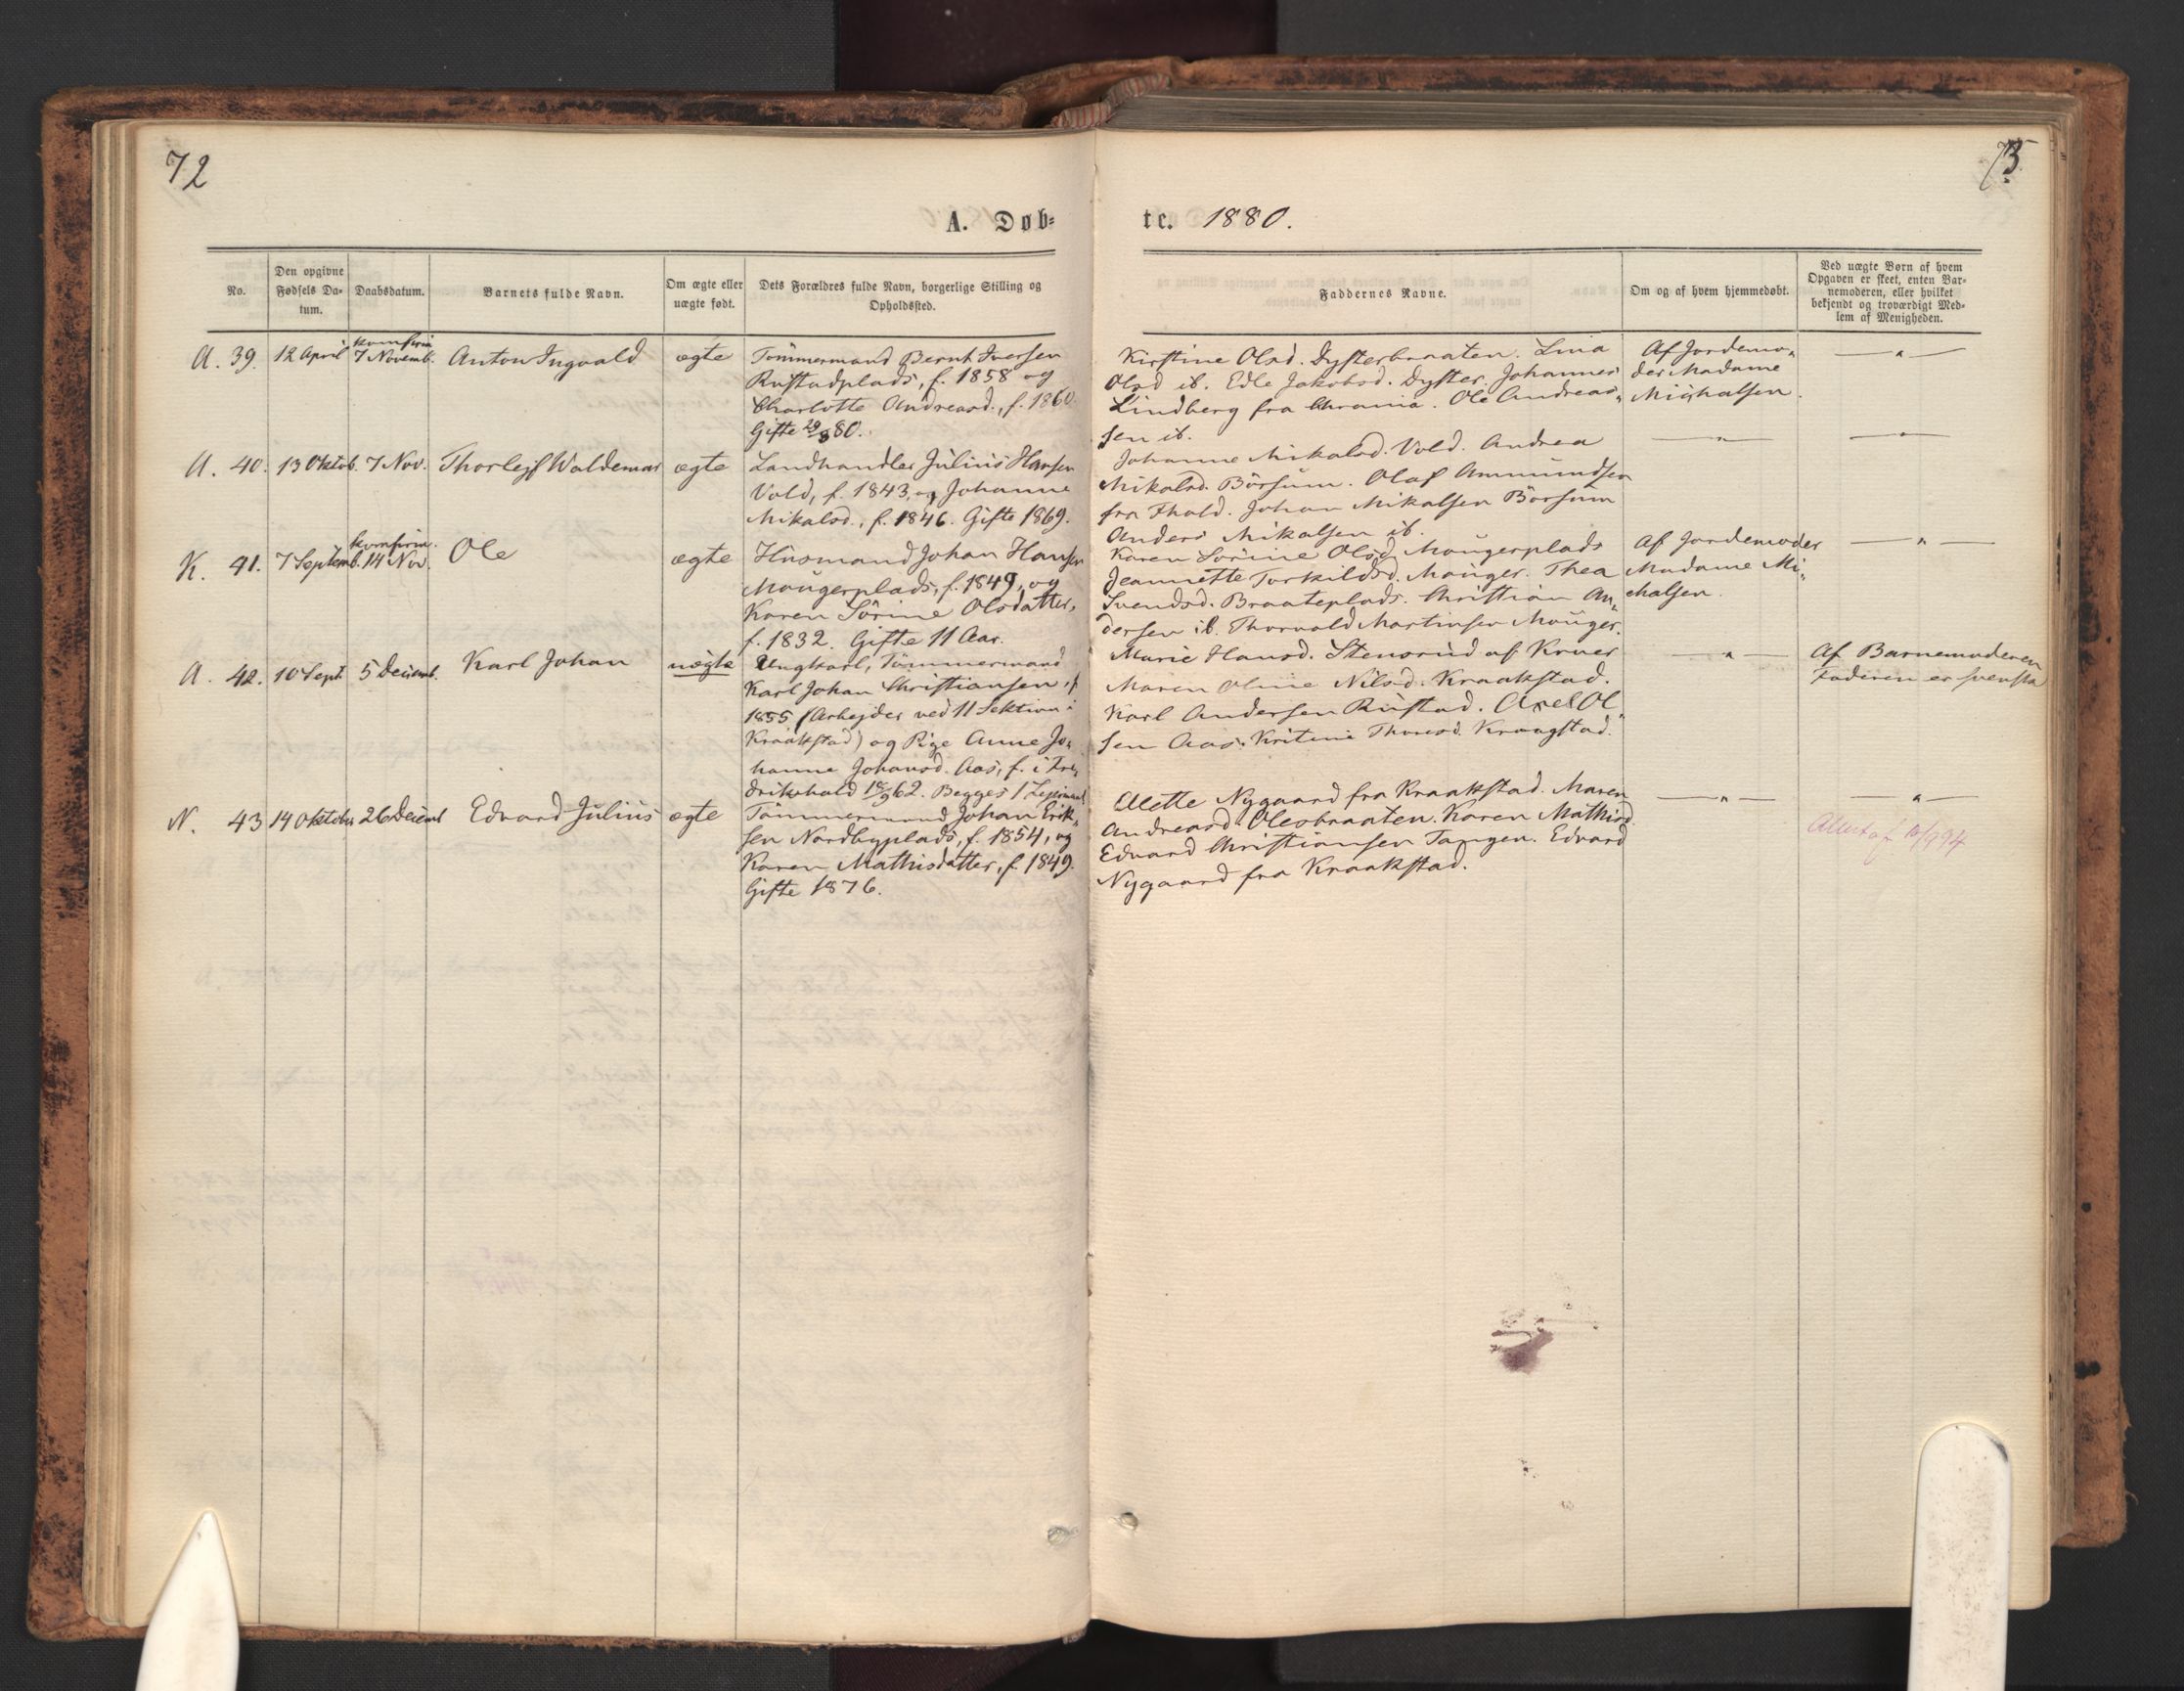 72
73
A. Døb-
te. 1880.
No.
Den opgivne Fødsels Da-
tum.
Daabsdatum.
Barnets fulde Navn.
Om ægte eller
uægte født.
Dets Forældres fulde Navn, borgerlige Stilling og
Opholdssted.
Faddernes Navne.
Om og af hvem hjemmedøbt.
Ved uægte Børn af hvem
Opgaven er skeet, enten Bar-
nemoderen, eller hvilket
bekjendt og troværdigt Med-
lem af Menigheden.
A. 39. 12 April
7 Novemb.
Anton Ingvald
ægte
Tömmermand Bernt Iversen
Rustadplads, f. 1858 og
Charlotte Andreasd., f. 1860.
Gifte 29/8 80.
Kirstine Olsd. Dysterbraaten. Lina
Olsd ib. Edle Jakobsd. Dyster. Johannes
Lindberg fra Chrania. Ole Andreas-
sen ib.
Af Jordemo-
der Madame
Michalsen.
— " —
A. 40. 13 Oktob. 7 Nov.
Thorleif Waldemar
ægte
Landhandler Julius Hansen
Vold, f. 1843, og Johanne
Mikalsd., f. 1846. Gifte 1869.
Johanne Mikalsd. Vold. Andrea
Mikalsd. Börsum. Olaf Ammundsen
fra Fhald. Johan Mikalsen Börsum
Anders Mikalsen ib.
— " —
— " —
K. 41. 7 Septemb.
konfirm.
14 Nov.
Ole
ægte
Husmand Johan Hansen
Maugerplads, f. 1849, og
Karen Sörine Olsdatter,
f. 1832. Gifte 11 Aar.
Karen Sörine Olsd. Maugerplads
Jeannette Torkildsd. Mauger. Thea
Svendsd. Braateplads. Christian An-
dersen ib. Thorvald Martinsen Mauger.
Af Jordemoder
Madame Mi-
chalsen.
— " —
A. 42. 10 Sept 5 Decemb.
Karl Johan
uægte
Ungkarl, Tömmermand
Karl Johan Christiansen, f
1855 (Arbejder ved 11 Sektion i
Kraakstad) og Pige Anne Jo-
hanne Johansd. Aas, f. i Fre-
drikshald 18/9 62. Begges 1
Marie Hansd. Stensrud af Kroer
Maren Oline Nilsd. Kraakstad.
Karl Andersen Rustad. Axel Ol-
sen Aas. Kritine Thoresd. Kraagstad.
— " —
Af Barnemoderen
Faderen er svensk
N. 43 14 Oktober 26 Decemb
Edvard Julius
ægte
Tömmermand Johan Erik-
sen Nordbyplads, f. 1854, og
Karen Mathisdatter, f. 1849.
Gifte 1876.
Elette Nygaard fra Kraakstad. Maren
Andreasd. Olesbraaten. Karen Mathisd.
Edvard Christiansen Tangen. Edvard
Nygaard fra Kraakstad.
— " —
— " —